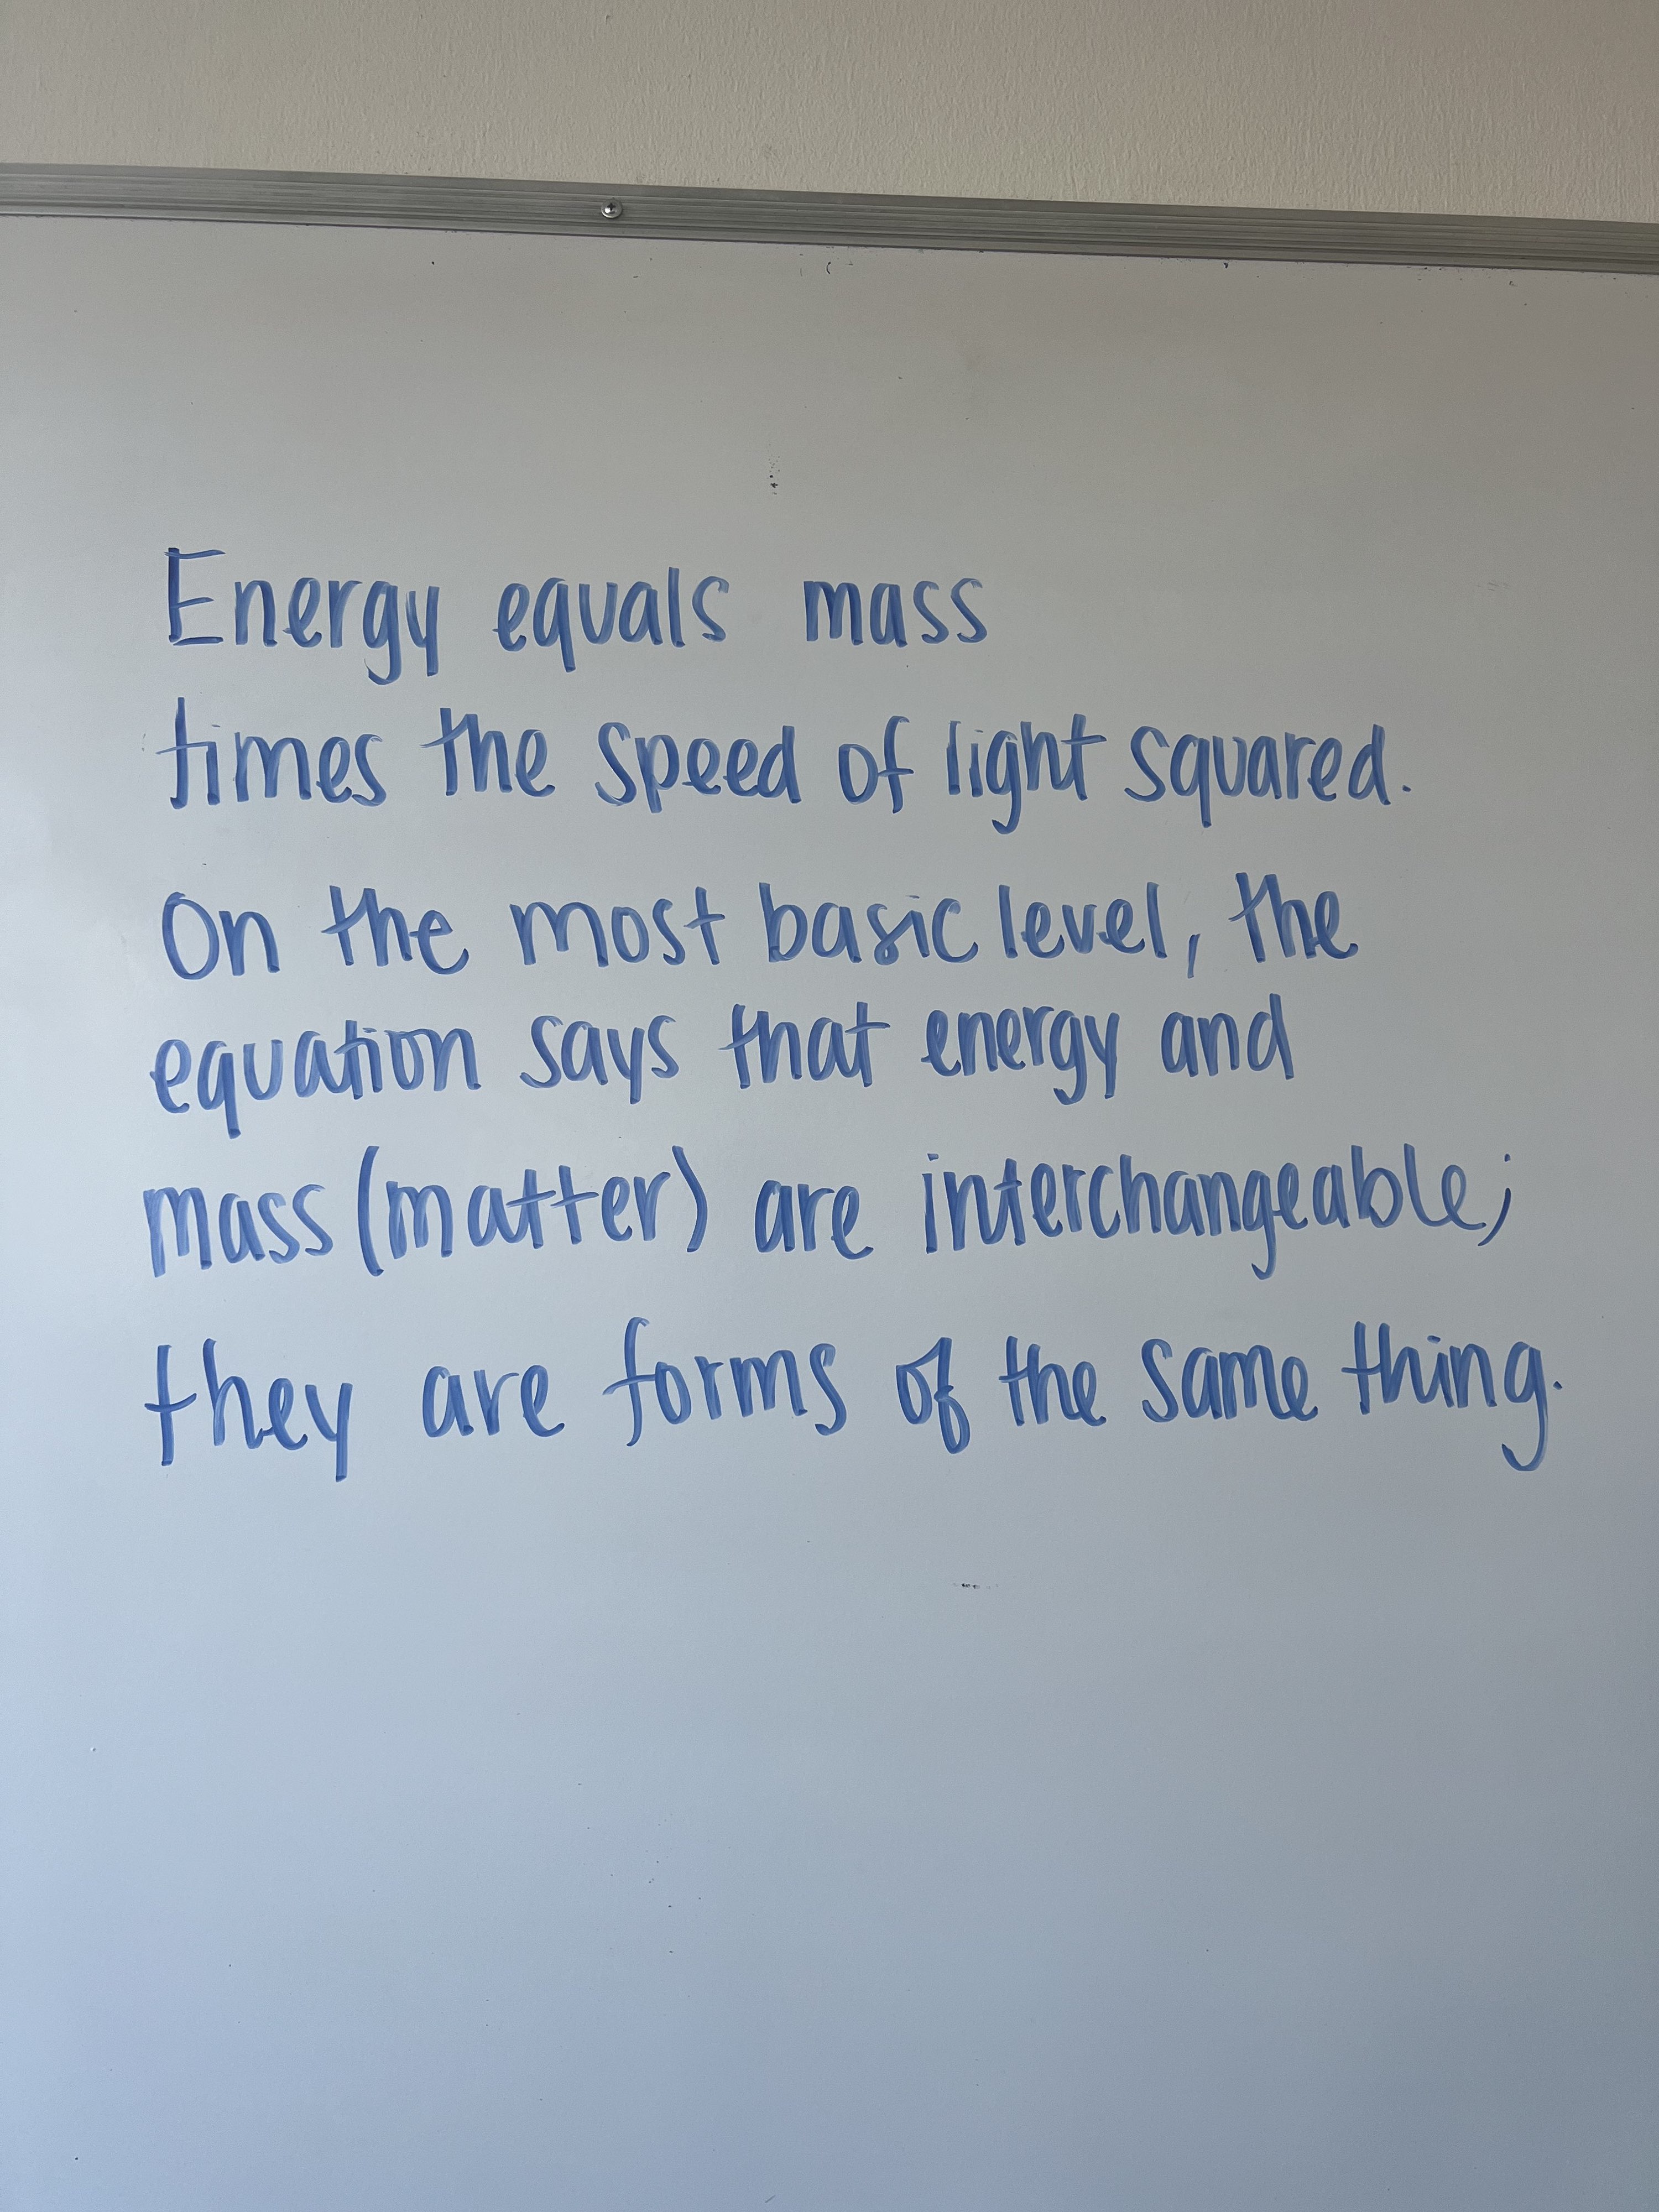 Energy equals mass
times the speed of light squared.
On the most basic level, the
equation says that energy and
mass (matter) are interchangeable;
they are forms of the same thing.